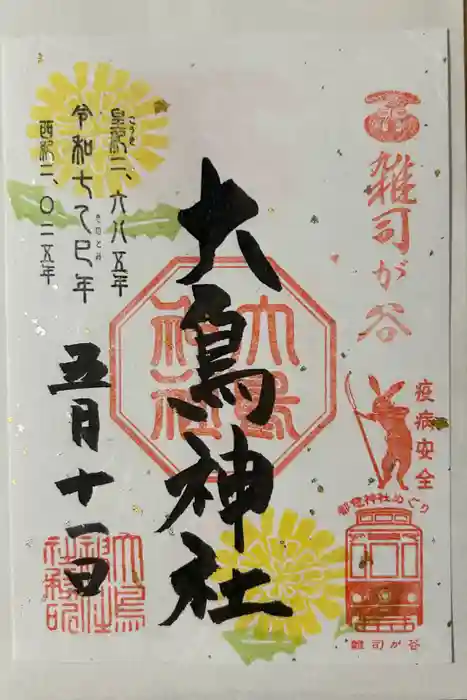 雑司が谷
疫病安全
都電神社めぐり
雑司が谷
大鳥神社
大鳥神社
皇紀二、六八五年
こうき
令和七乙巳年
きのとみ
西暦二、〇二五年
五月十一日